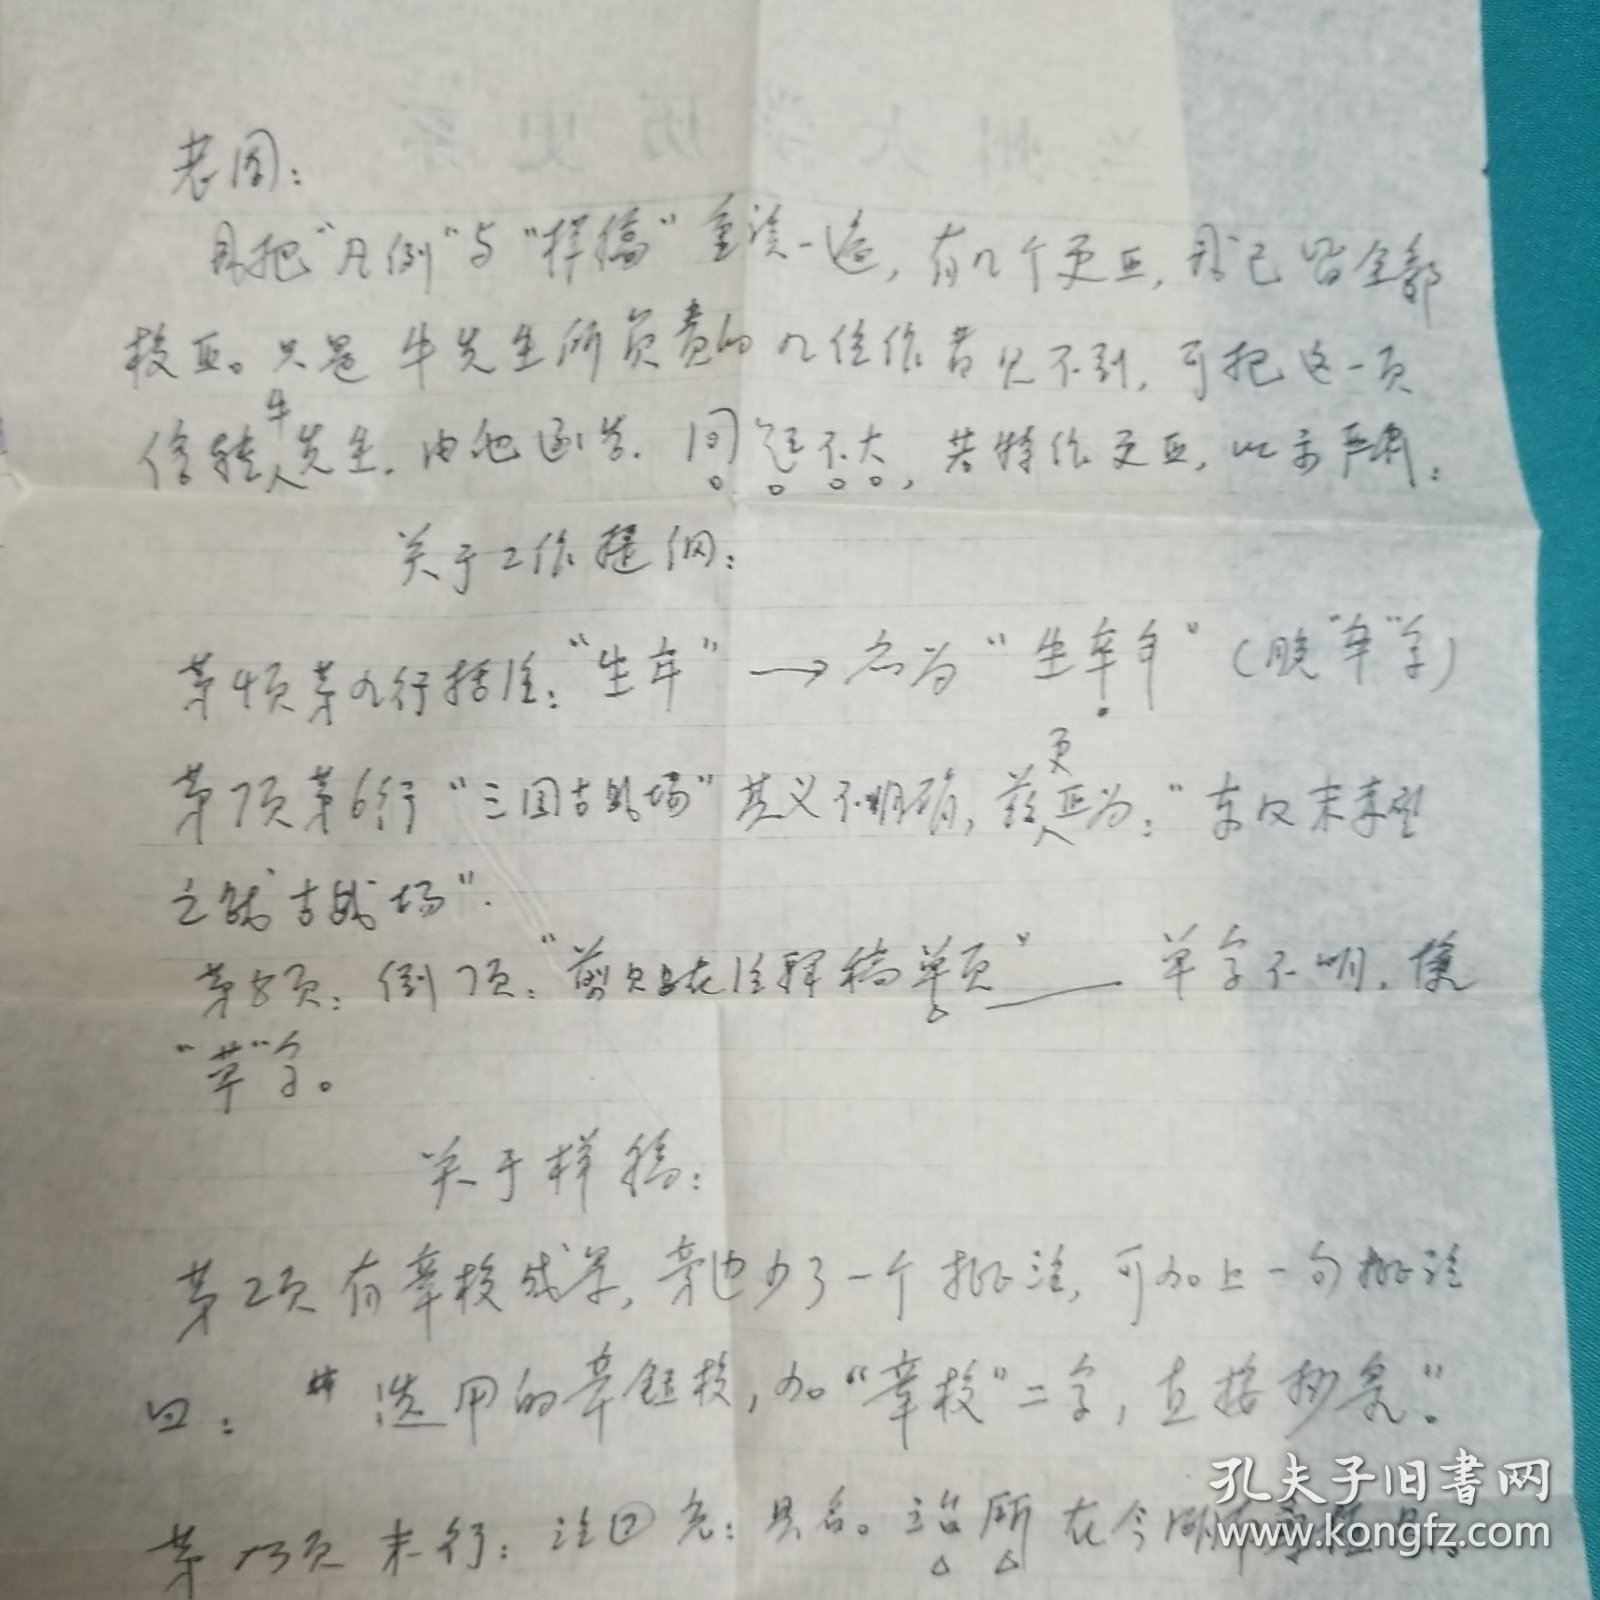 兰州大学历史系
老周：
又把“凡例”与“样稿”重读一遍，有几个更正，我已皆全部
校正。只是牛先生所负责的几位作者见不到，可把这一页
信转牛先生，由他通告。问题不大，若特作更正，以示严肃：
关于工作提纲：
第4页第九行括注：“生年”→应为“生卒年”（脱“卒”字）
第7页第6行“三国古战场”其义不明确，兹更正为：“东汉末年
之战古战场”。
第8页：倒7页：“剪贴在注释稿单页”——单字不明，像
“草”字。
关于样稿：
第2页有章校成果，旁边少了一个批注，可加上一句批注
曰：“选用的章钰校，加“章校”二字，直接抄录”。
第13页末行：注②充：县名。治所在今湖
孔夫子旧书网
www.kongfz.com